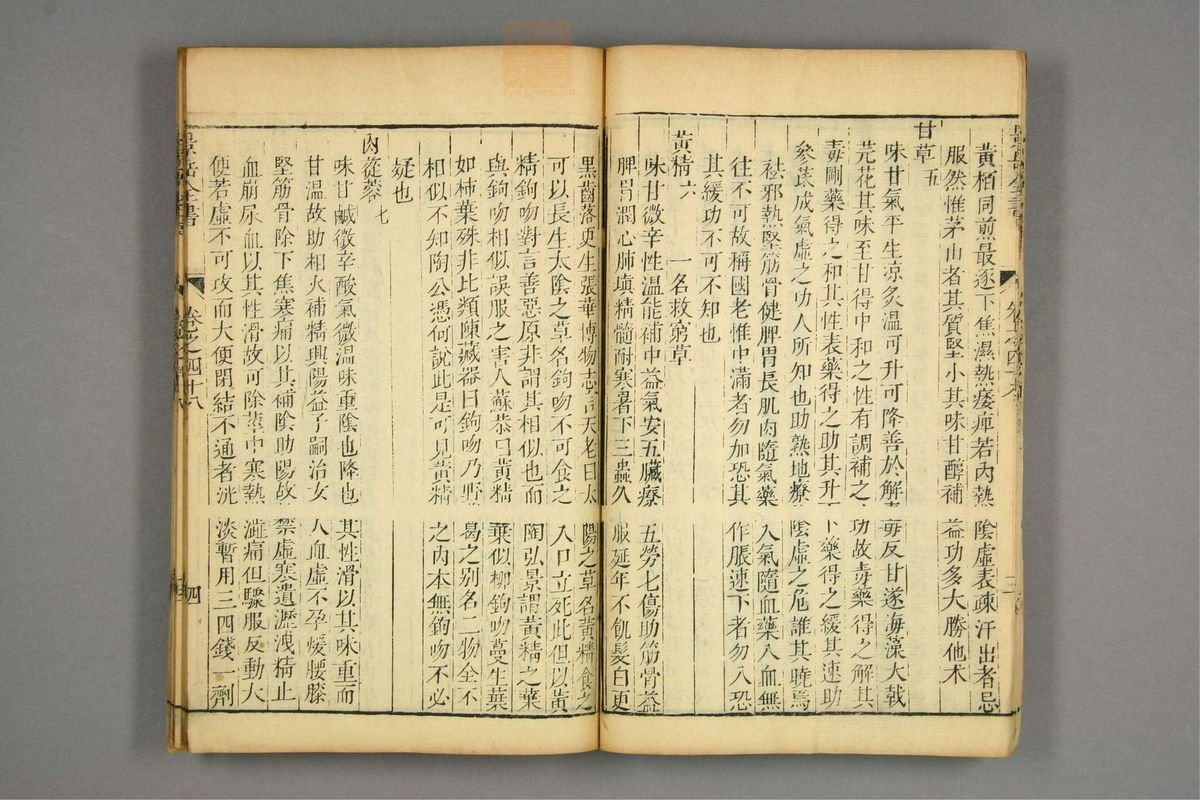 黃栢同煎最逐下焦濕熱痿痺若內熱陰虛表疎汗出者忌
服然惟茅山者其質堅小其味甘醇補益功多大勝他术
甘草五
味甘氣平生凉炙溫可升可降善於解毒反甘遂海藻大戟
芫花其味至甘得中和之性有調補之功故毒藥得之解其
毒剛藥得之和其性表藥得之助其升下藥得之緩其速助
參芪成氣虛之功人所知也助熟地療陰虛之危誰其曉焉
袪邪熱堅筋骨健脾胃長肌肉隨氣藥入氣隨血藥入血無
往不可故稱國老惟中滿者勿加恐其作脹速下者勿入恐
其緩功不可不知也
黃精六 一名救窮草
味甘微辛性溫能補中益氣安五臟療五勞七傷助筋骨益
脾胃潤心肺塡精髓耐寒暑下三蟲久服延年不飢髮白更
黑齒落更生張華博物志言天老曰太陽之草名黃精食之
可以長生太陰之草名鉤吻不可食之入口立死此但以黃
精鉤吻對言善惡原非謂其相似也而陶弘景謂黃精之葉
與鉤吻相似誤服之害人蘇恭曰黃精葉似柳鉤吻蔓生葉
如柿葉殊非比類陳藏器曰鉤吻乃野葛之別名二物全不
相似不知陶公憑何說此是可見黃精之內本無鉤吻不必
疑也
肉蓯蓉七
味甘鹹微辛酸氣微溫味重陰也降也其性滑以其味重而
甘溫故助相火補精興陽益子嗣治女人血虛不孕煖腰膝
堅筋骨除下焦寒痛以其補陰助陽故禁虛寒遺瀝洩精止
血崩尿血以其性滑故可除莖中寒熱澁痛但驟服反動大
便若虛不可攻而大便閉結不通者洸淡暫用三四錢一劑
景岳全書 卷之四十八 四